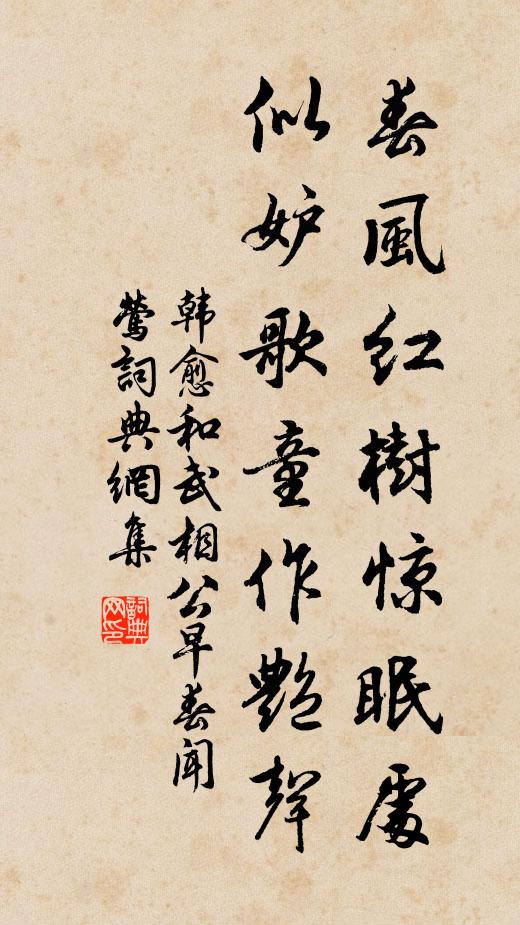 春風红樹惊眠處
似妒歌童作艷聲
韩愈和武相公早春聞
鶯詞典網集
詞典网印